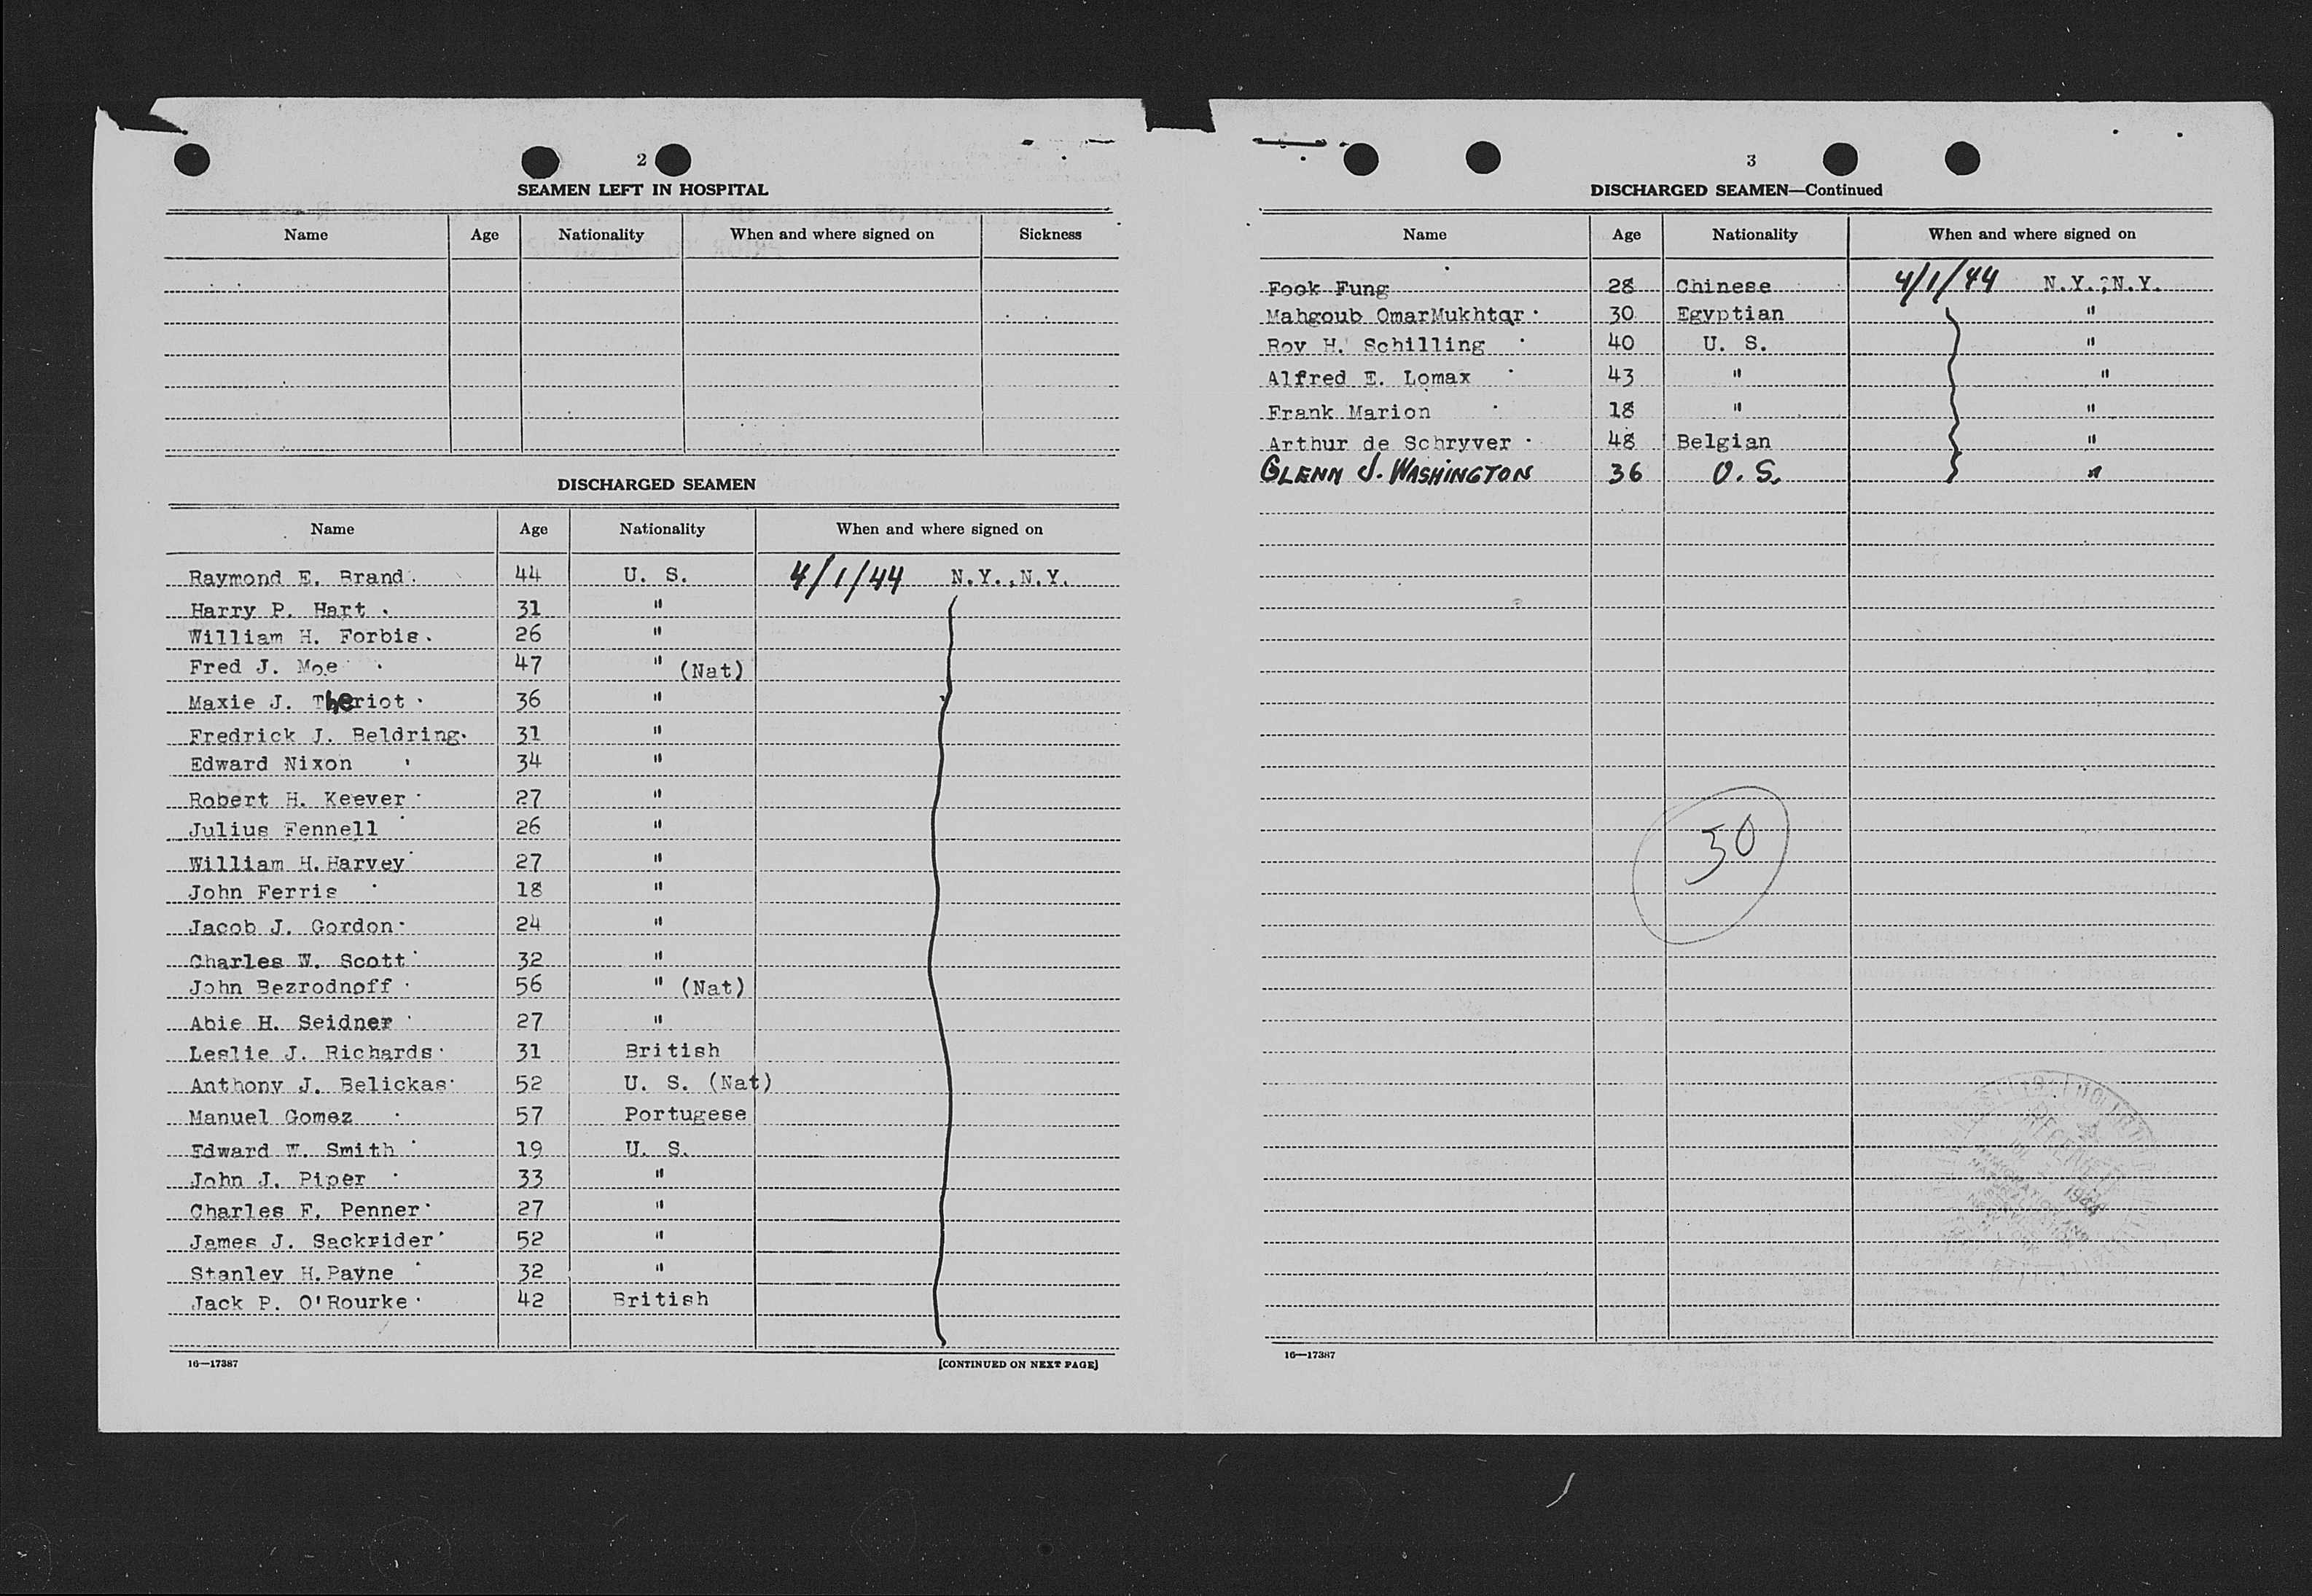 2
SEAMEN LEFT IN HOSPITAL
Name Age Nationality When and where signed on Sickness
DISCHARGED SEAMEN
Name Age Nationality When and where signed on
Raymond E. Brand 44 U. S. 4/1/44 N.Y.,N.Y.
Harry P. Hart 31 "
William H. Forbis 26 "
Fred J. Moe 47 " (Nat)
Maxie J. Theriot 36 "
Fredrick J. Beldring 31 "
Edward Nixon 34 "
Robert H. Keever 27 "
Julius Fennell 26 "
William H.Harvey 27 "
John Ferris 18 "
Jacob J. Gordon 24 "
Charles W. Scott 32 "
John Bezrodnoff 56 " (Nat)
Abie H. Seidner 27 "
Leslie J. Richards 31 British
Anthony J. Belickas 52 U. S. (Nat)
Manuel Gomez 57 Portugese
Edward W. Smith 19 U. S.
John J. Piper 33 "
Charles F. Penner 27 "
James J. Sackrider 52 "
Stanley H.Payne 32 "
Jack P. O'Rourke 42 British
16—17387 [CONTINUED ON NEXT PAGE]
3
DISCHARGED SEAMEN—Continued
Name Age Nationality When and where signed on
Fook Fung 28 Chinese 4/1/44 N.Y.,N.Y.
Mahgoub OmarMukhtar 30 Egyptian "
Roy H. Schilling 40 U. S. "
Alfred E. Lomax 43 " "
Frank Marion 18 " "
Arthur de Schryver 48 Belgian "
GLENN J. WASHINGTON 36 U.S. "
30
RECEIVED
1944
IMMIGRATION AND
NATURALIZATION
16—17387